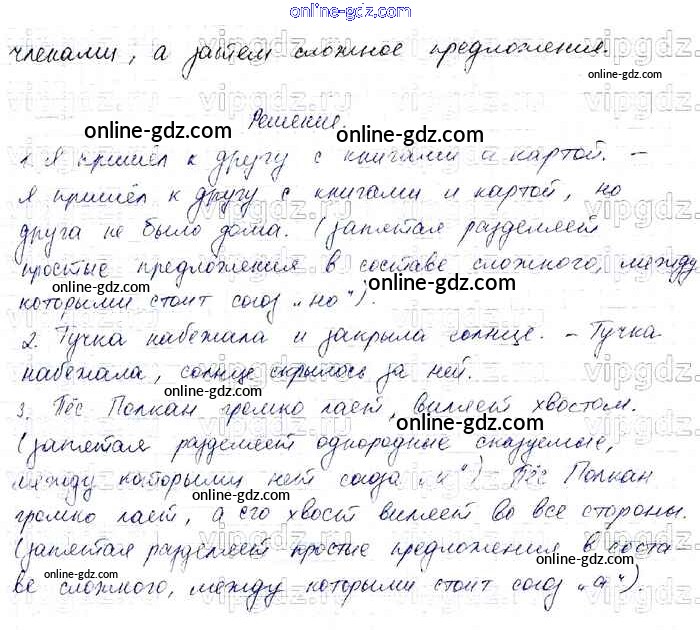 online-gdz.com
членами, а затем сложное предложения.
online-gdz.com
Решение
online-gdz.com
online-gdz.com
1. Я пришёл к другу с книгами и картой. –
online-gdz.com
online-gdz.com
Я пришёл к другу с книгами и картой, но
online-gdz.com
друга не было дома. (запятая разделяет
online-gdz.com
простые предложения в составе сложного, между
online-gdz.com
которыми стоит союз „но").
online-gdz.com
2. Тучка набежала и закрыла солнце. – Тучка
набежала, солнце скрылось за ней.
online-gdz.com
3. Пёс Полкан громко лает, виляет хвостом.
online-gdz.com
(запятая разделяет однородные сказуемые,
online-gdz.com
между которыми нет союза „и") – Пёс Полкан
online-gdz.com
громко лает, а его хвост виляет во все стороны.
online-gdz.com
(запятая разделяет простые предложения в соста
online-gdz.com
ве сложного, между которыми стоит союз „а").
online-gdz.com